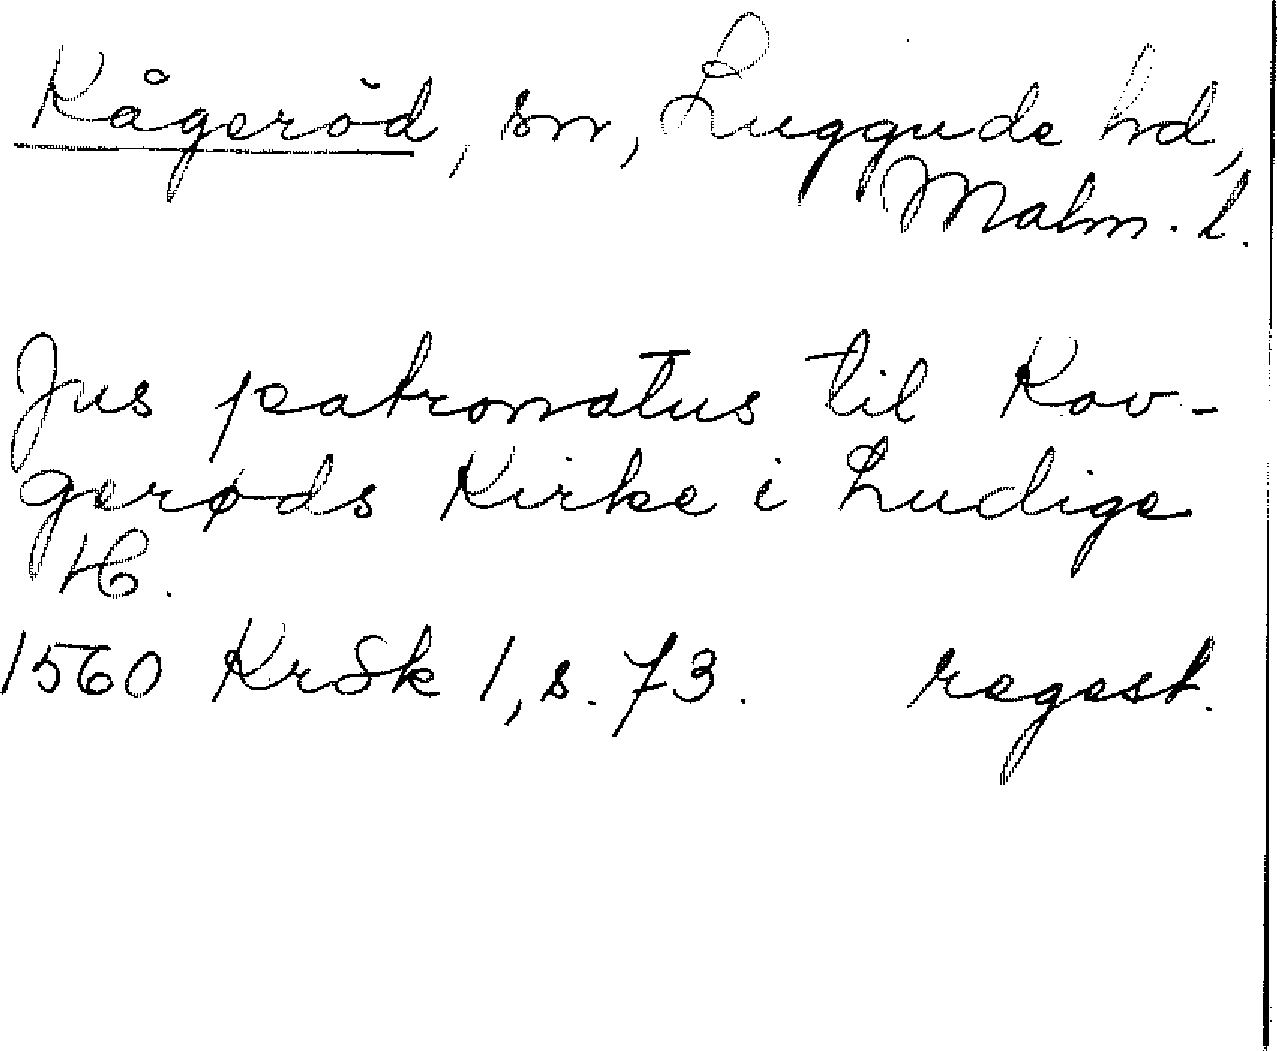 Kågeröd, sn, Luggude hd,
Malm. l.
Jus patronatus til Kav-
gerøds Kirke i Ludige
H.
1560 KrSk 1, s. 73. regest.